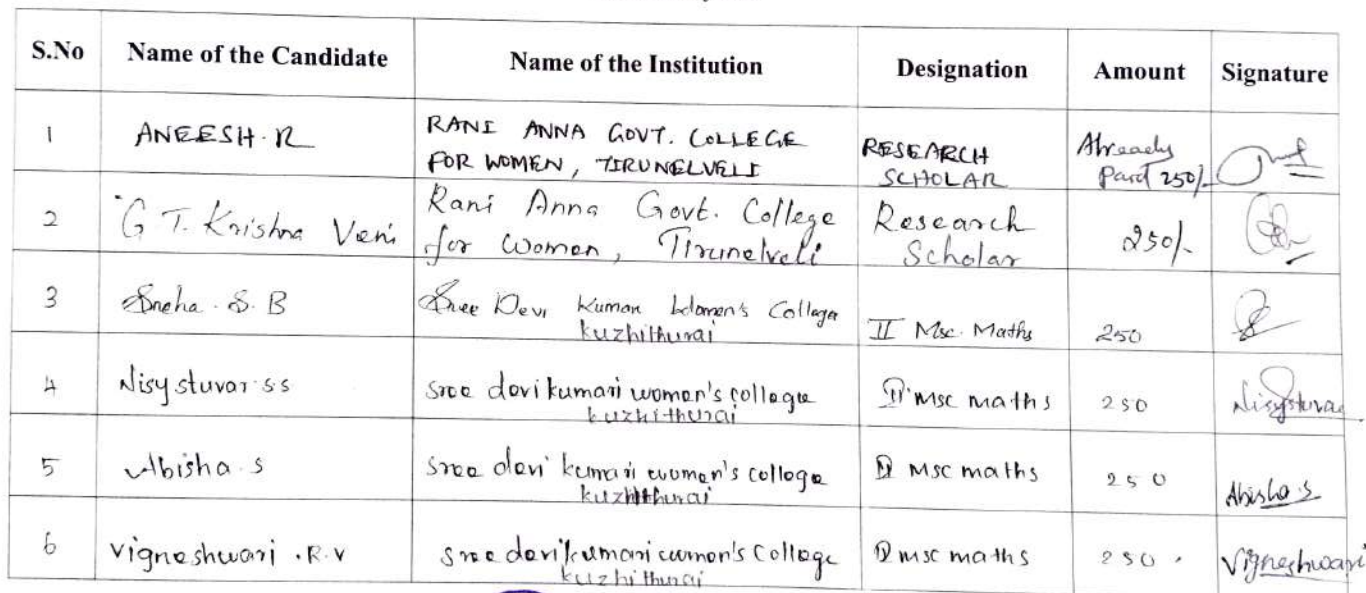 S.No Name of the Candidate Name of the Institution Designation Amount Signature
1 ANEESH. R RANI ANNA GOVT. COLLEGE FOR WOMEN, TIRUNELVELI RESEARCH SCHOLAR Already Paid 250/-
2 G T. Krishna Veni Rani Anna Govt. College for Women, Tirunelveli Research Scholar 250/-
3 Sneha. S. B Sree Devi Kumari Women's College kuzhithurai II Msc. Maths 250
4 Nisy stuvar s s sree devi kumari women's college kuzhithurai II msc maths 250 Nisystuvar
5 Abisha. S sree devi kumari women's college kuzhithurai II Msc maths 250 Abisha. S
6 Vigneshwari . R. V sree devi kumari women's College kuzhithurai II msc maths 250 . Vigneshwari